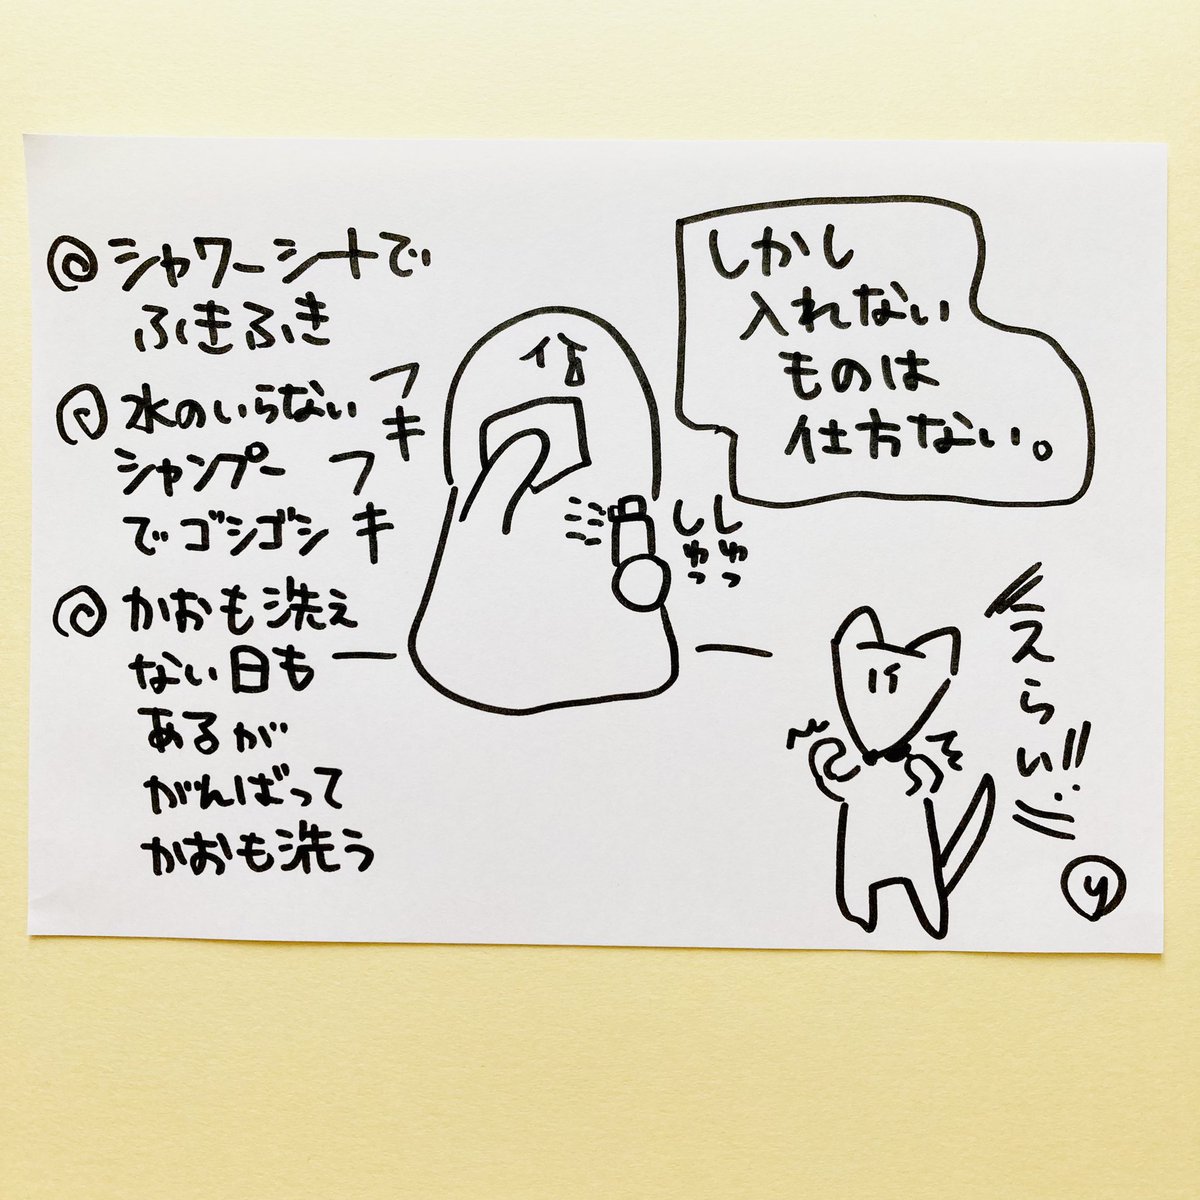 シャワーシートで
ふきふき
水のいらない
シャンプー
でゴシゴシ
かおも洗え
ない日も
あるが
がんばって
かおも洗う
フキ
フキ
しかし
入れない
ものは
仕方ない。
しゅっ
しゅっ
えらい!!
y